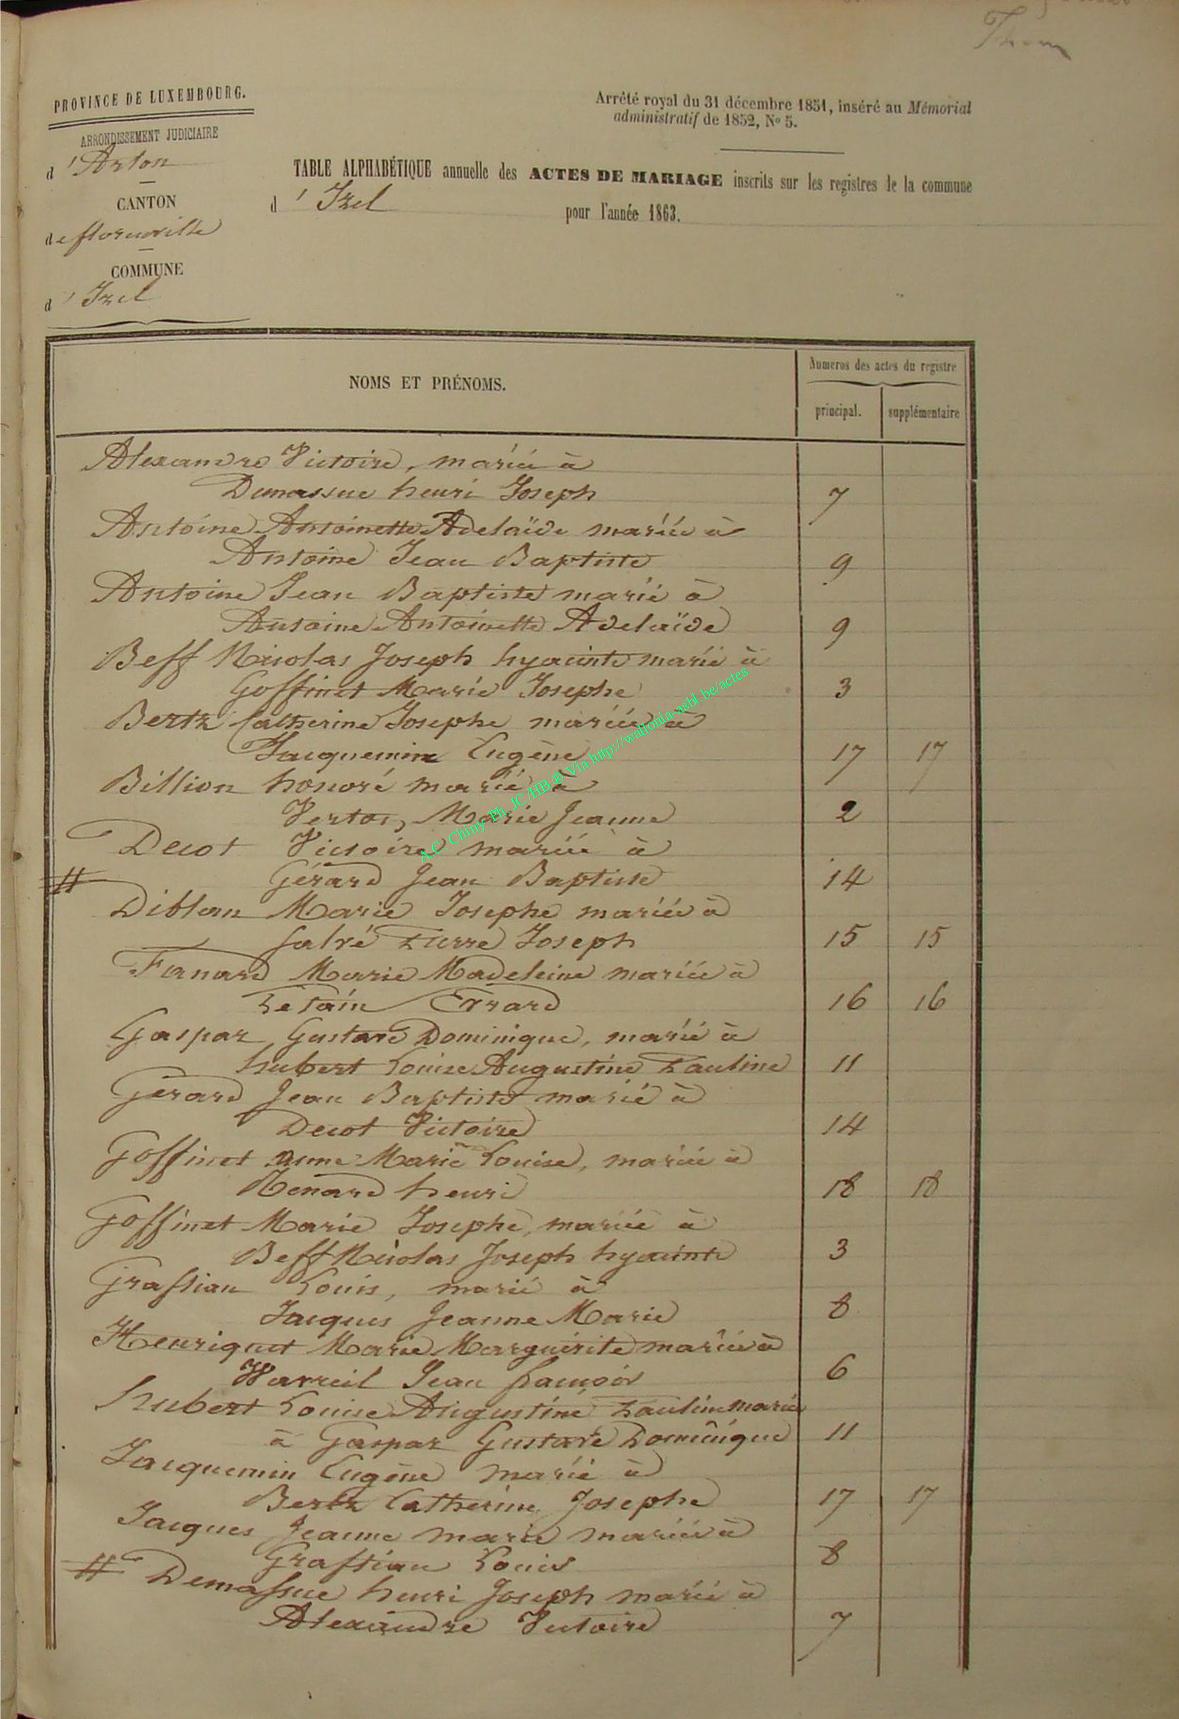 PROVINCE DE LUXEMBOURG.
ARRONDISSEMENT JUDICIAIRE
d'Arlon
CANTON
de florenville
COMMUNE
d'Izel
Arrêté royal du 31 décembre 1851, inséré au Mémorial
administratif de 1852, No 5.
TABLE ALPHABÉTIQUE annuelle des ACTES DE MARIAGE inscrits sur les registres de la commune
d'Izel pour l'année 1863.
NOMS ET PRÉNOMS.
Numeros des actes du registre
principal. supplémentaire
Alexandre Victoire, mariée à
Demassue henri Joseph 7
Antoine Antoinette Adelaïde mariée à
Antoine Jean Baptiste 9
Antoine Jean Baptiste marié à
Antoine Antoinette Adelaïde 9
Beff Nicolas Joseph hyacinte marié à
Goffinet Marie Josephe 3
Bertz Catherine Josephe mariée à
Jacquemin Eugène 17 17
Billion honoré marié à
Marie Jeanne 2
Decot Victoire mariée à
Gérard Jean Baptiste 14
Diblan Marie Josephe mariée à
Pierre Joseph 15 15
Fanard Marie Madeleine mariée à
Letain Errard 16 16
Gaspar Gustave Dominique, marié à
hubert Louise Augustine Pauline 11
Gérard Jean Baptiste marié à
Decot Victoire 14
Goffinet anne Marie Louise, mariée à
Renard henri 18 18
Goffinet Marie Josephe, mariée à
Beff Nicolas Joseph hyacinte 3
Grassian Louis, marié à
Jacques Jeanne Marie 8
Henriquet Marie Marguérite mariée à
Warreil Jean francois 6
hubert Louise Augustine Pauline mariée
à Gaspar Gustave Dominique 11
Jacquemin Eugène marié à
Bertz Catherine Josephe 17 17
Jacques Jeanne marie mariée à
Grassian Louis 8
# Demassue henri Joseph marié à
Alexandre Victoire 7
A.C. Chiny Ph. JC HB @ Via http://wallonia-asbl.be/actes